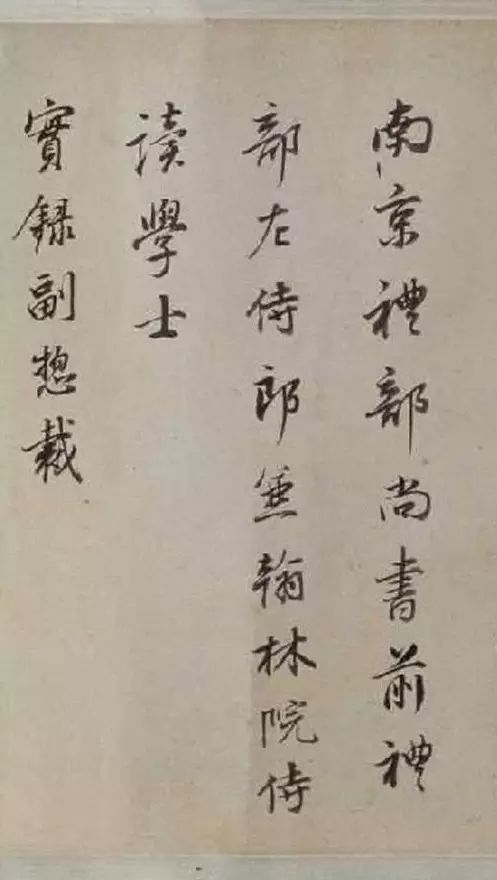 南京禮部尚書前禮
部左侍郎兼翰林院侍
讀學士
實錄副總裁